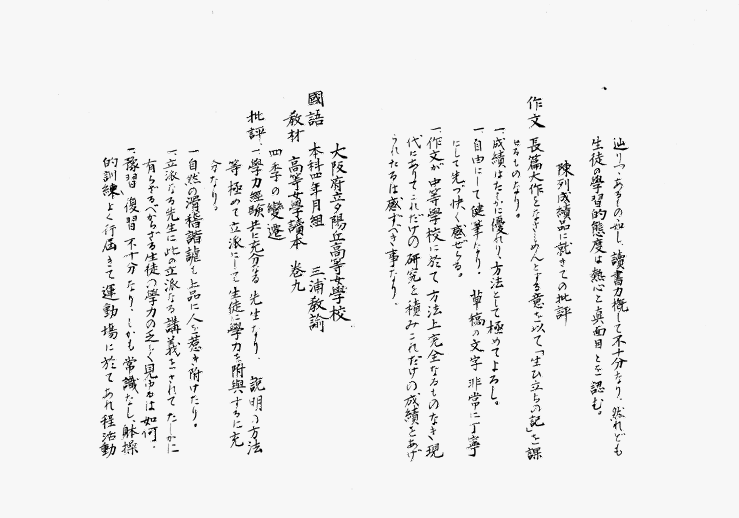 辿りつゝあるものの如し、讀書力概して不十分なり、然れども
生徒の學習的態度は熱心と眞面目とを認む。
陳列成績品に就きての批評
作文 長篇大作をなさしめんとする意を以て「生ひ立ちの記」を課
せるものなり。
一、成績はたしかに優れり、方法として極めてよろし。
一、自由にして健筆なり、草稿の文字非常に丁寧
にして先づ快く感ぜらる。
一、作文が中等學校に於て方法上完全なるものなき現
代にありてこれだけの研究を積みこれだけの成績をあげ
られたるは感ずべき事なり、
大阪府立夕陽丘高等女學校
國語 本科四年月組 三浦教諭
教材 高等女學讀本 卷九
四季の變遷
批評、一、學力經驗共に充分なる先生なり、説明の方法
等極めて立派にして生徒に學力を附與するに充
分なり。
一、自然の滑稽諧謔も上品に人を惹き附けたり。
一、立派なる先生に此の立派なる講義をされてたしかに
有らざるべからざる生徒の學力の乏しく見ゆるは如何、
一、豫習復習不十分なり、しかも常識なし、躰操
的訓練よく行届きて運動場に於てあれ程活動